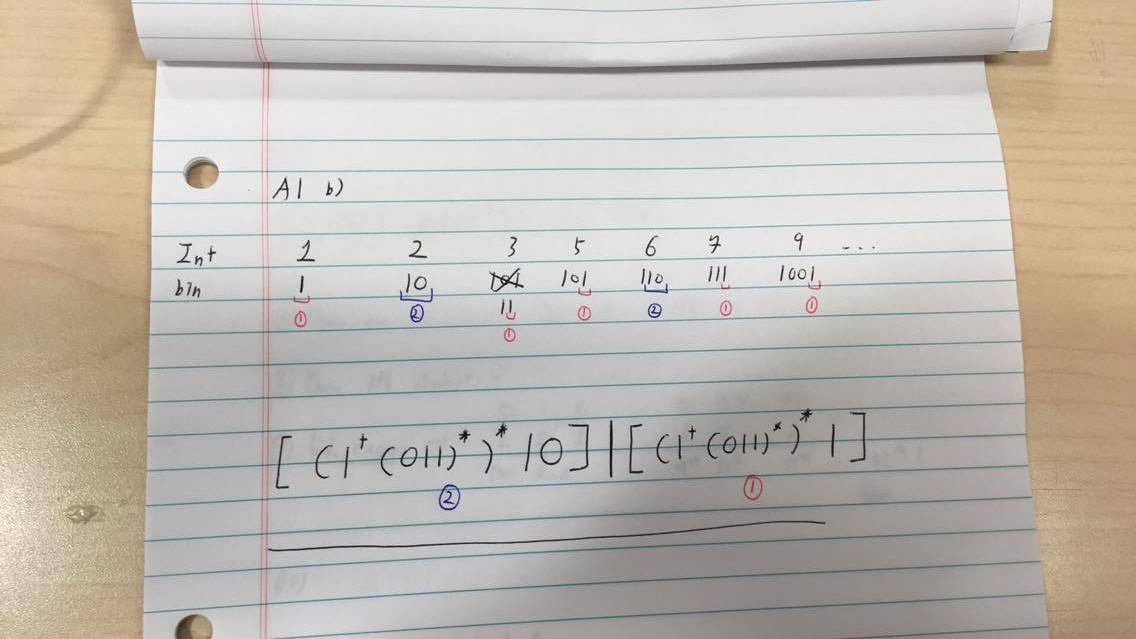 A1 b)
Int 1 2 3 5 6 7 9 ...
bin 1 10 101 101 110 111 1001
① ② 11 ① ② ① ①
①
[(1⁺(0|1)*)*10]|[(1⁺(0|1)*)*1]
② ①